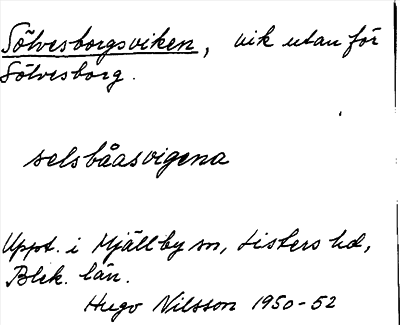 Sölvesborgsviken, vik utanför
Sölvesborg.
selsbåasvigena
Uppt. i Mjällby sn, Listers hd,
Blek. län.
Hugo Nilsson 1950-52